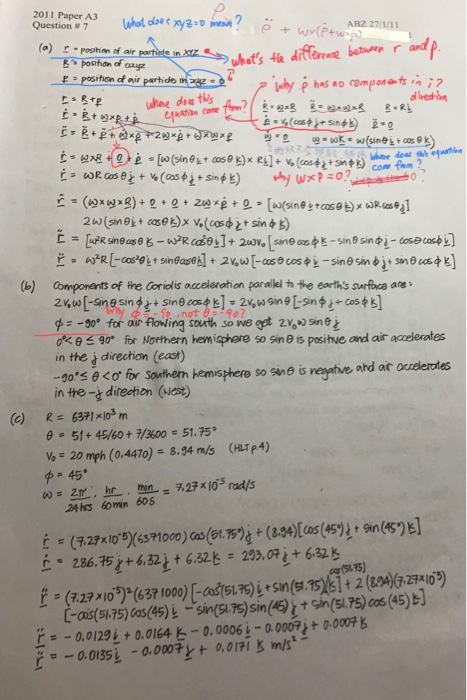 2011 Paper A3
Question #7
What does xyz=0 mean?
ρ̈ + ωx(ρ̇+ωxρ)
ABZ 27/1/11
(a) r = position of air particle in XYZ
R = position of oxyz
ρ = position of air particles in xyz = 0
what's the difference between r and ρ.
why ρ̇ has no components in i? direction
r = R + ρ
where does this equation come from?
ṙ = Ṙ + ωxρ + ρ̇
r̈ = R̈ + ρ̈ + ω̇xρ + 2ωxρ̇ + ωxωxρ
Ṙ = ωxR R̈ = ωxωxR R = Ri
ρ̇ = V₀(cosϕj + sinϕk) ρ̈ = 0
ω̇ = 0 ω = ωK = ω(sinθi + cosθk)
where does this equation come from?
ṙ = ωxR + 0 + ρ̇ = [ω(sinθi + cosθk) x Ri] + V₀(cosϕj + sinϕk)
ṙ = ωR cosθj + V₀(cosϕj + sinϕk)
why ωxρ = 0?
r̈ = (ωxωxR) + 0 + 0 + 2ωxρ̇ + 0 = [ω(sinθi + cosθk) x ωR cosθj]
2ω(sinθi + cosθk) x V₀(cosϕj + sinϕk)
r̈ = [ω²R sinθcosθk - ω²R cos²θi] + 2ωV₀[sinθcosϕk - sinθsinϕj - cosθcosϕi]
r̈ = ω²R[-cos²θi + sinθcosθk] + 2V₀ω[-cosθcosϕi - sinθsinϕj + sinθcosϕk]
(b) Components of the Coriolis acceleration parallel to the earth's surface are:
2V₀ω[-sinθsinϕj + sinθcosϕk] = 2V₀ω sinθ[-sinϕj + cosϕk]
why ϕ = -90, not θ = -90?
ϕ = -90° for air flowing south so we get 2V₀ω sinθj
0° < θ ≤ 90° for Northern hemisphere so sinθ is positive and air accelerates
in the j direction (east)
-90° ≤ θ < 0° for Southern hemisphere so sinθ is negative and air accelerates
in the -j direction (West)
(c) R = 6371 x10³ m
θ = 51 + 45/60 + 7/3600 = 51.75°
V₀ = 20 mph (0.4470) = 8.94 m/s (HLT p.4)
ϕ = 45°
ω = 2π/24hrs . hr/60min . min/60s = 7.27 x 10⁻⁵ rad/s
ṙ = (7.27x10⁻⁵)(6371000) cos(51.75°)j + (8.94)[cos(45°)j + sin(45°)k]
ṙ = 286.75j + 6.32j + 6.32k = 293.07j + 6.32k
r̈ = (7.27x10⁻⁵)²(6371000)[-cos²(51.75)i + sin(51.75)cos(51.75)k] + 2(8.94)(7.27x10⁻⁵)
[-cos(51.75)cos(45)i - sin(51.75)sin(45)j + sin(51.75)cos(45)k]
r̈ = -0.0129i + 0.0164k - 0.0006i - 0.0007j + 0.0007k
r̈ = -0.0135i - 0.0007j + 0.0171k m/s²